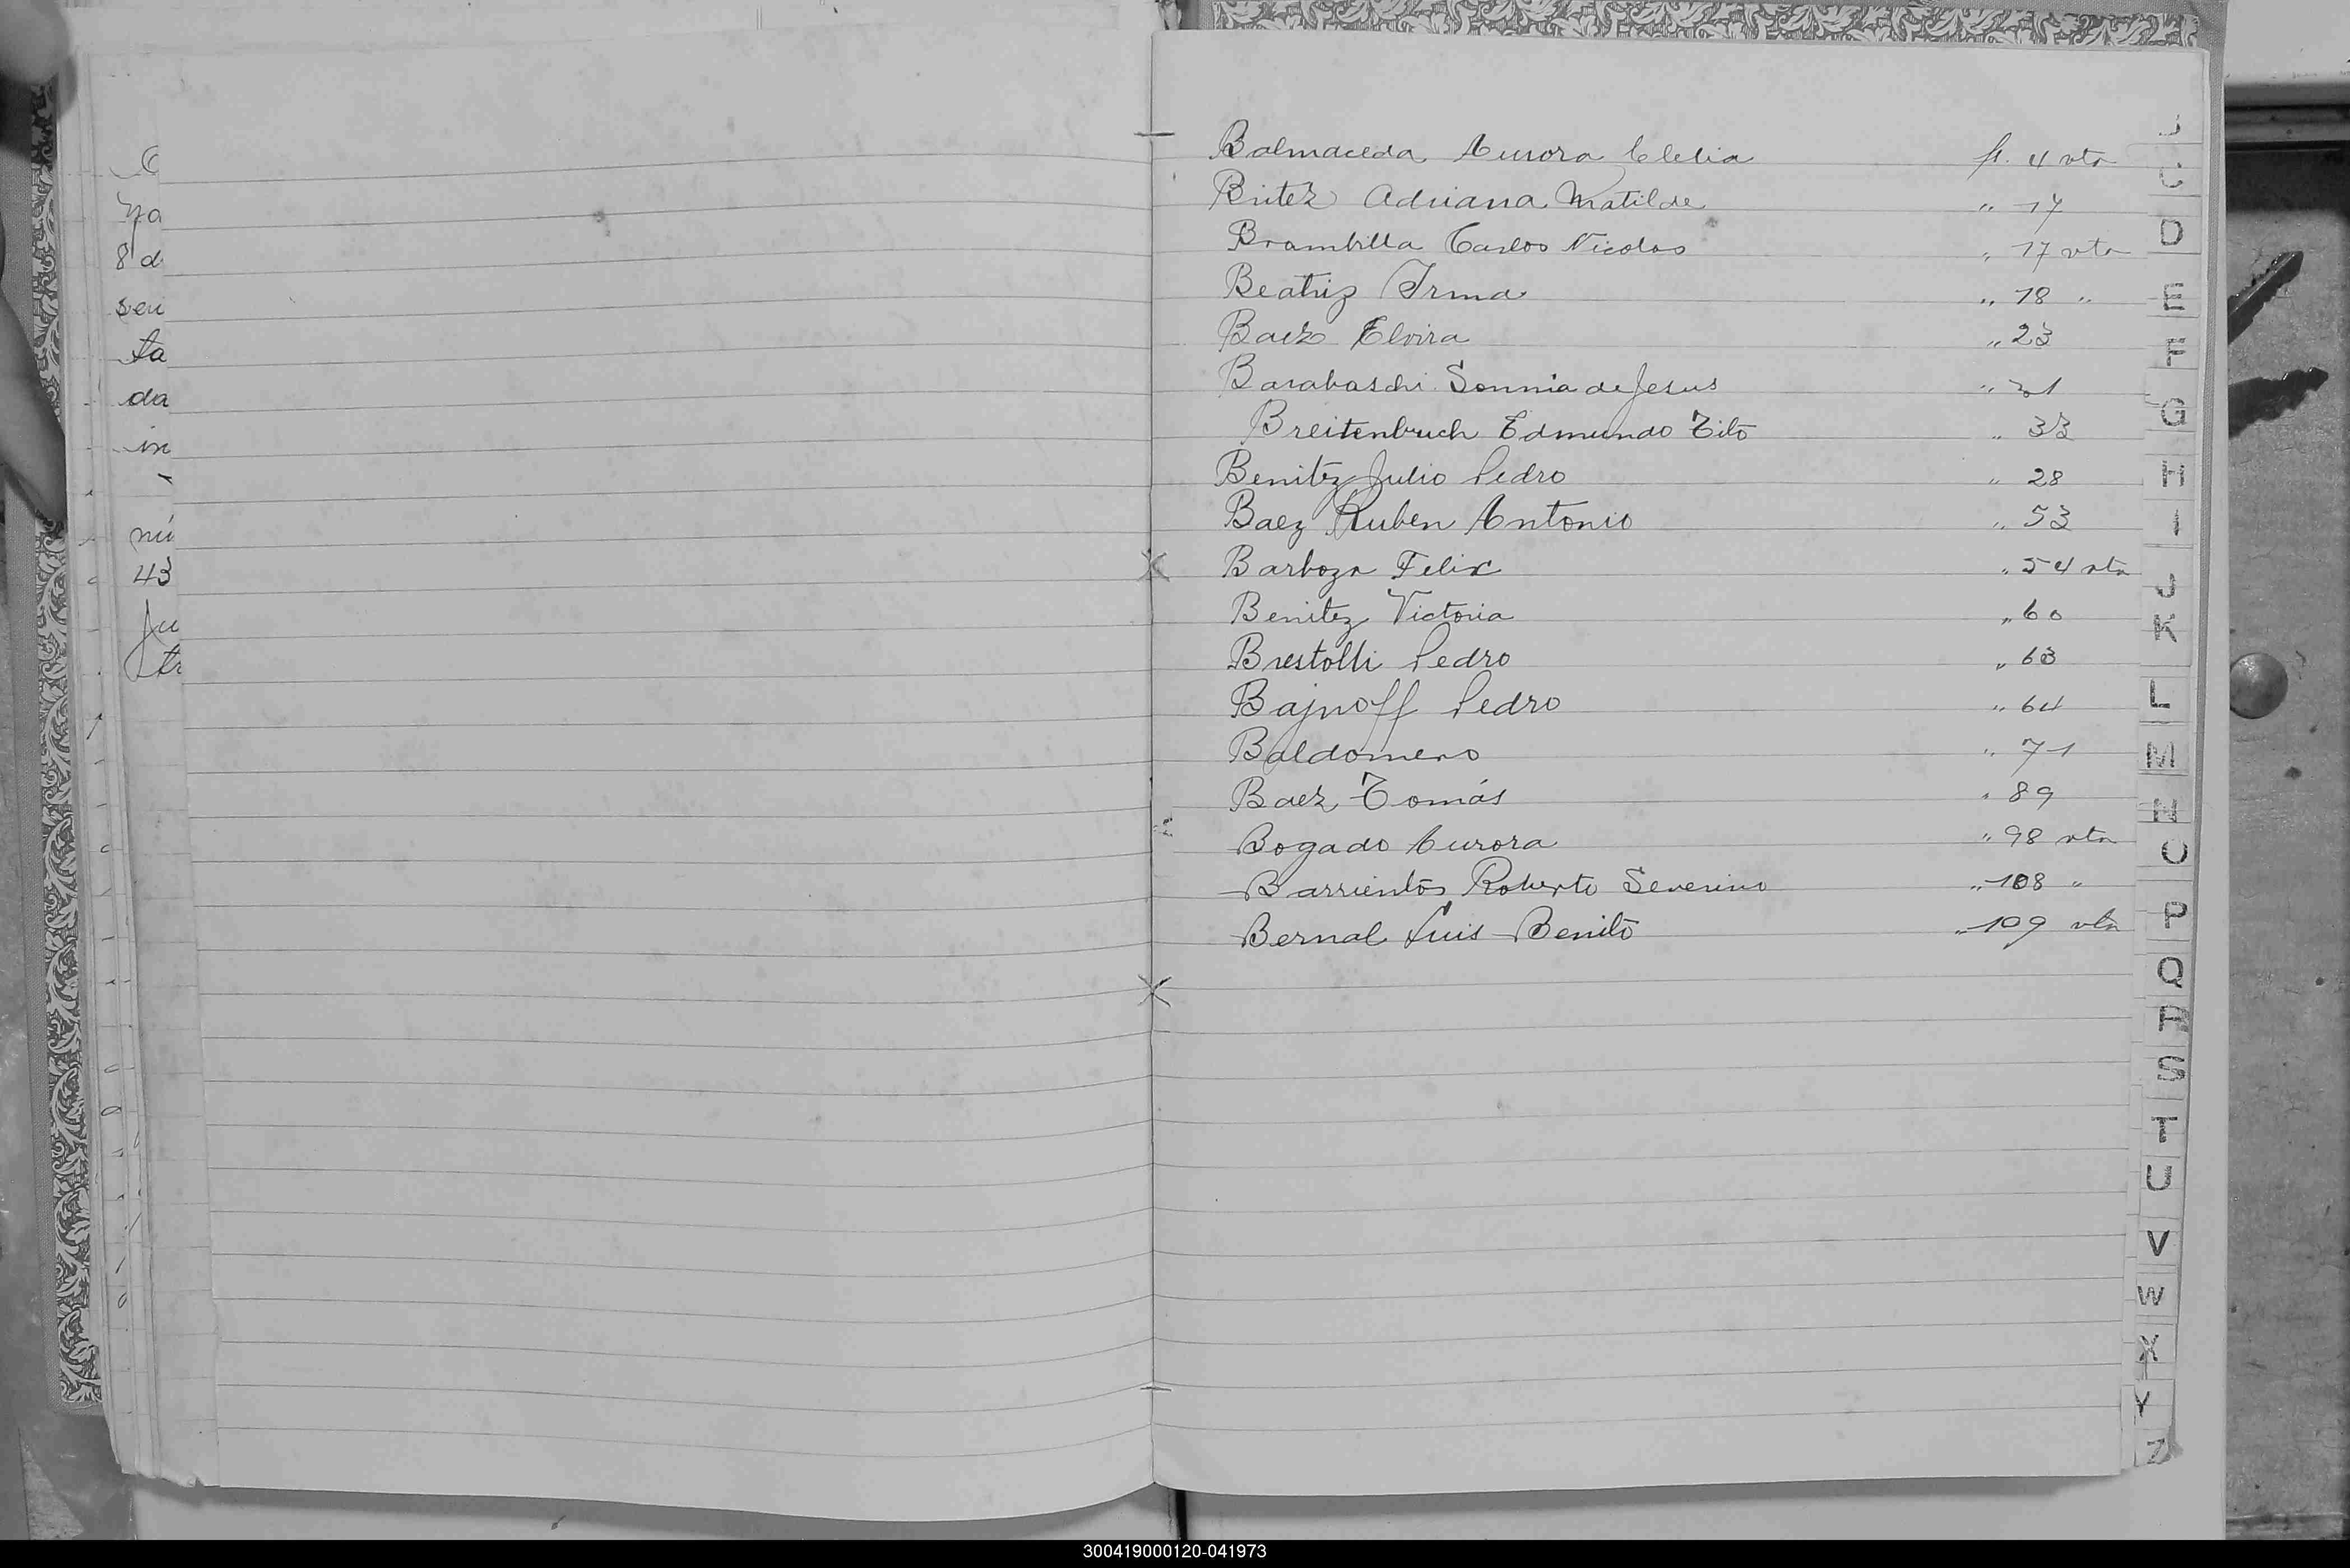 C
ya
8 d
seu
ta
da
in
nú
43
Ju
tr
Balmaceda Aurora Clelia fl. 4 vta
Britez Adriana Matilde " 17
Brambilla Carlos Nicolas " 17 vta
Beatriz Irma " 18 "
Baez Elvira " 23
Barabaschi Sonnia de Jesus " 31
Breitenbruch Edmundo Tito " 33
Benitez Julio Pedro " 28
Baez Ruben Antonio " 53
Barboza Felix " 54 vta
Benitez Victoria " 60
Pedro " 63
Bajnoff Pedro " 64
Baldomero " 71
Baez Tomás " 89
Bogado Aurora " 98 vta
Barrientos Roberto Severino " 108 "
Bernal Luis Benito " 109 vta
C
D
E
F
G
H
I
J
K
L
M
N
O
P
Q
R
S
T
U
V
W
X
Y
Z
300419000120-041973